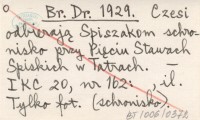 Br. Dr. 1929. Czesi
odbierają Spiszakom schro-
nisko przy Pięciu Stawach
Spiskich w Tatrach. —
IKC 20, nr 162: , il.
Tylko fot. (schronisko).